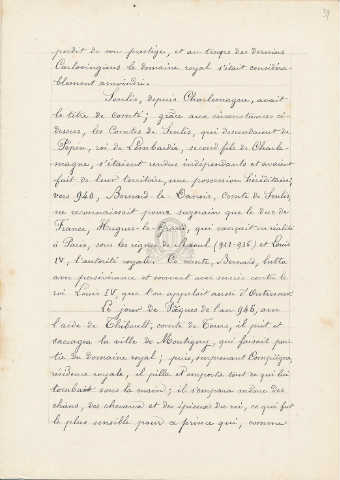 39
perdit de son prestige, et au temps des derniers
Carlovingiens le domaine royal s'était considéra-
blement amoindri.
Senlis, depuis Charlemagne, avait
le titre de comté; grâce aux circonstances ci-
dessus, les Comtes de Senlis, qui descendaient de
Pépin, roi de Lombardie, second fils de Charle-
magne, s'étaient rendus indépendants et avaient
fait de leur territoire, une possession héréditaire;
vers 940, Bernard-le-Danois, Comte de Senlis,
ne reconnaissait pour suzerain que le duc de
France, Hugues-le-Grand, qui exerçait en réalité
à Paris, sous les règnes de Raoul (923-936) et Louis
IV, l'autorité royale. Ce comte, Bernard, lutta
avec persévérance et souvent avec succès contre le
roi Louis IV, que l'on appelait aussi d'Outremer.
Le jour de Pâques de l'an 945, avec
l'aide de Thibault, comte de Tours, il prit et
saccagea la ville de Montigny, qui faisait par-
tie du domaine royal; puis, surprenant Compiègne,
résidence royale, il pilla et emporta tout ce qui lui
tombait sous la main; il s'empara même des
chiens, des chevaux et des épieux du roi, ce qui fut
le plus sensible pour ce prince qui, comme